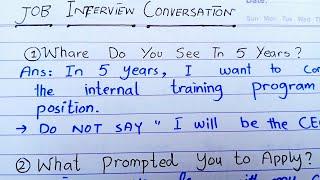 JOB INTERVIEW CONVERSATION
Date:
Sun Mon Tue Wed Th
① Whare Do You See In 5 Years?
Ans: In 5 years, I want to
the internal training program
position.
→ Do NOT SAY " I will be the CE
② What Prompted You to Apply?